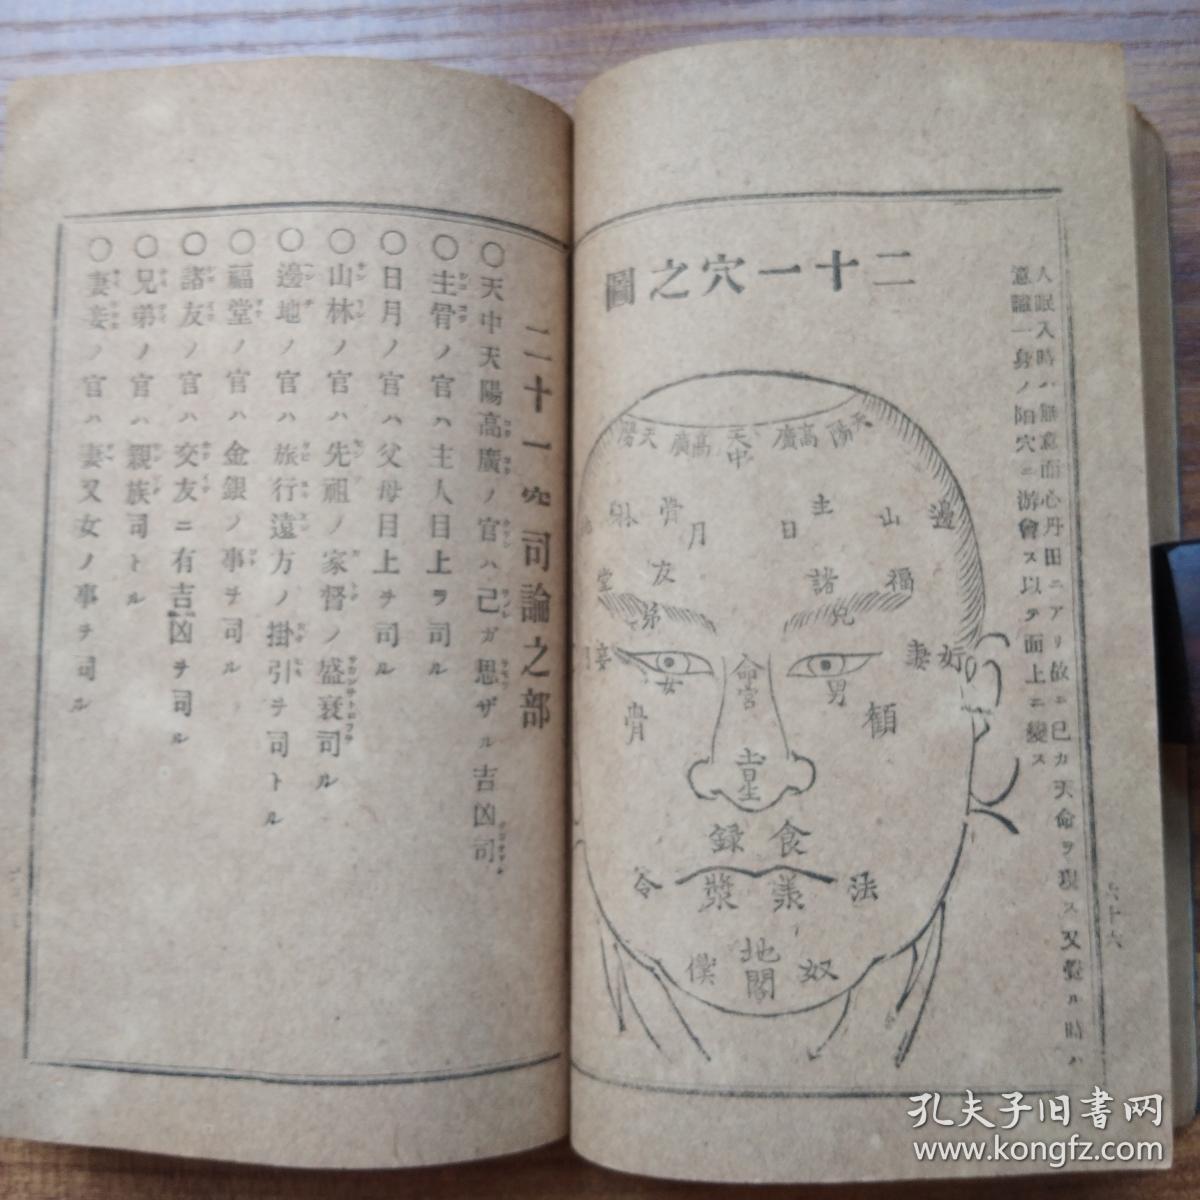 二十一穴之圖
人眠入時ハ無意而心丹田ニアリ故ニ己カ天命ヲ現ス又覺ル時ハ
意識一身ノ陽穴ニ游會ス以テ面上ニ變ス
天陽
高廣
天中
高廣
天陽
邊
山
主
日
月
骨
林
福
諸
友
堂
兄
弟
奸
妻
妾
男
女
命宮
顴
骨
食
録
法
令
奴
地閣
僕
六十六
二十一穴司論之部
〇天中天陽高廣ノ官ハ己ガ思ザル吉凶司
〇主骨ノ官ハ主人目上ヲ司ル
〇日月ノ官ハ父母目上ヲ司ル
〇山林ノ官ハ先祖ノ家督ノ盛衰司ル
〇邊地ノ官ハ旅行遠方ノ掛引ヲ司トル
〇福堂ノ官ハ金銀ノ事ヲ司ル
〇諸友ノ官ハ交友ニ有吉凶ヲ司ル
〇兄弟ノ官ハ親族司トル
〇妻妾ノ官ハ妻又女ノ事ヲ司ル
孔夫子旧書网
www.kongfz.com